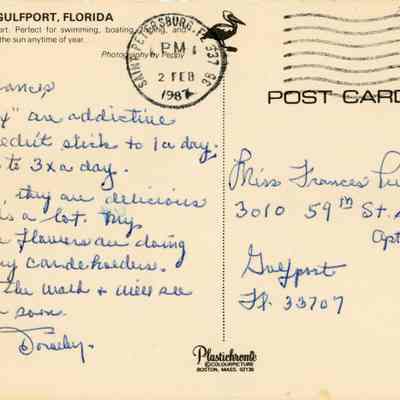 GULFPORT, FLORIDA
art. Perfect for swimming, boating, and
the sun anytime of year.
Photography by Peppy
SAINT PETERSBURG, FL 337
PM
2 FEB
1987
POST CARD
rances
" are addictive
stick to 1 a day.
to 3x a day.
they are delicious
s a lot. My
flowers are doing
my candleholders.
the Wald + will see
soon
Dorseby.
Miss Frances
3010 59th St. S
Apt
Gulfport
Fl. 33707
Plastichrome
©COLOURPICTURE
BOSTON, MASS. 02130